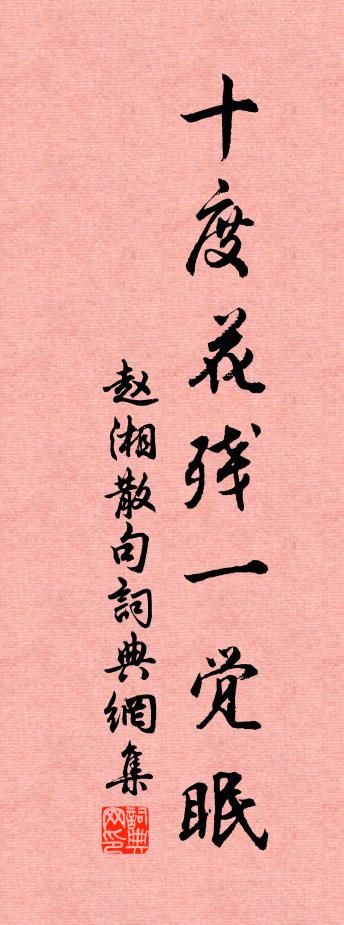 十度花残一觉眠
赵湘散句詞典網集
詞典网印